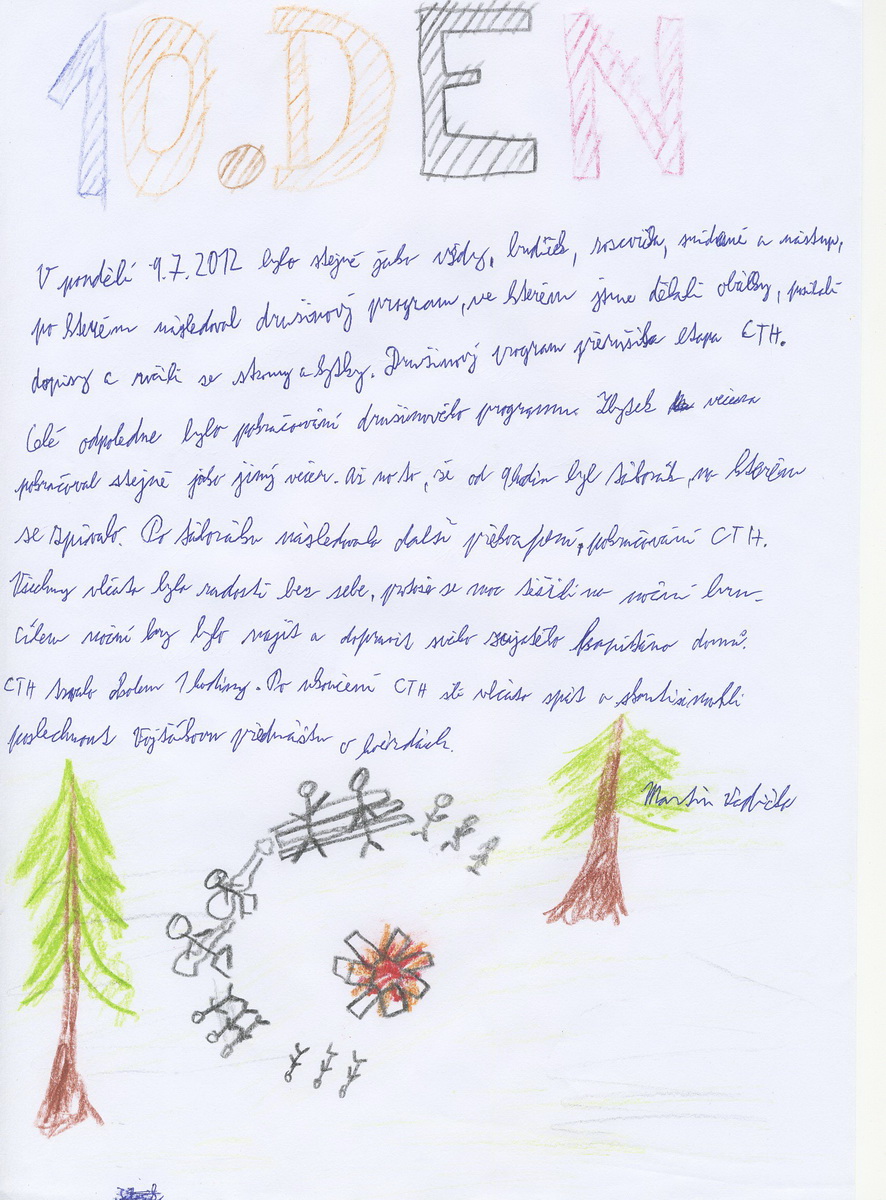 10. DEN
V pondělí 9.7.2012 bylo stejně jako vždy, budíček, rozcvička, snídaně a nástup,
po kterém následoval družinový program, ve kterém jsme dělali obálky, psali
dopisy a učili se stromy a kytky. Družinový program přerušila etapa CTH.
Celé odpoledne bylo pokračování družinového programu. Zbytek večera
pokračoval stejně jako jiný večer. Až na to, že od 9 hodin byl táborák, na kterém
se zpívalo. Po táboráku následovalo další překvapení, pokračování CTH.
Všechny vlčata byla radostí bez sebe, protože se moc těšili na noční hru.
Cílem noční hry bylo najít a dopravit svého kapitána domů.
CTH trvalo okolem 1 hodiny. Po ukončení CTH šli vlčata spát a skauti si mohli
poslechnout Vojtákovu přednášku o hvězdách.
Martin